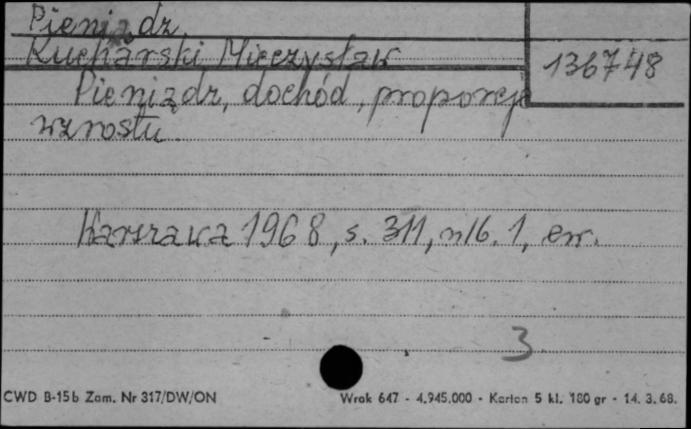 Pieniądz
Kucharski Mieczysław
136748
Pieniądz, dochód, proporcje
wzrostu.
Warszawa 1968, s. 311, nlb. 1, err.
3
CWD B-15b Zam. Nr 317/DW/ON
Wrok 647 - 4.945.000 - Karton 5 kl. 180 gr - 14. 3. 68.